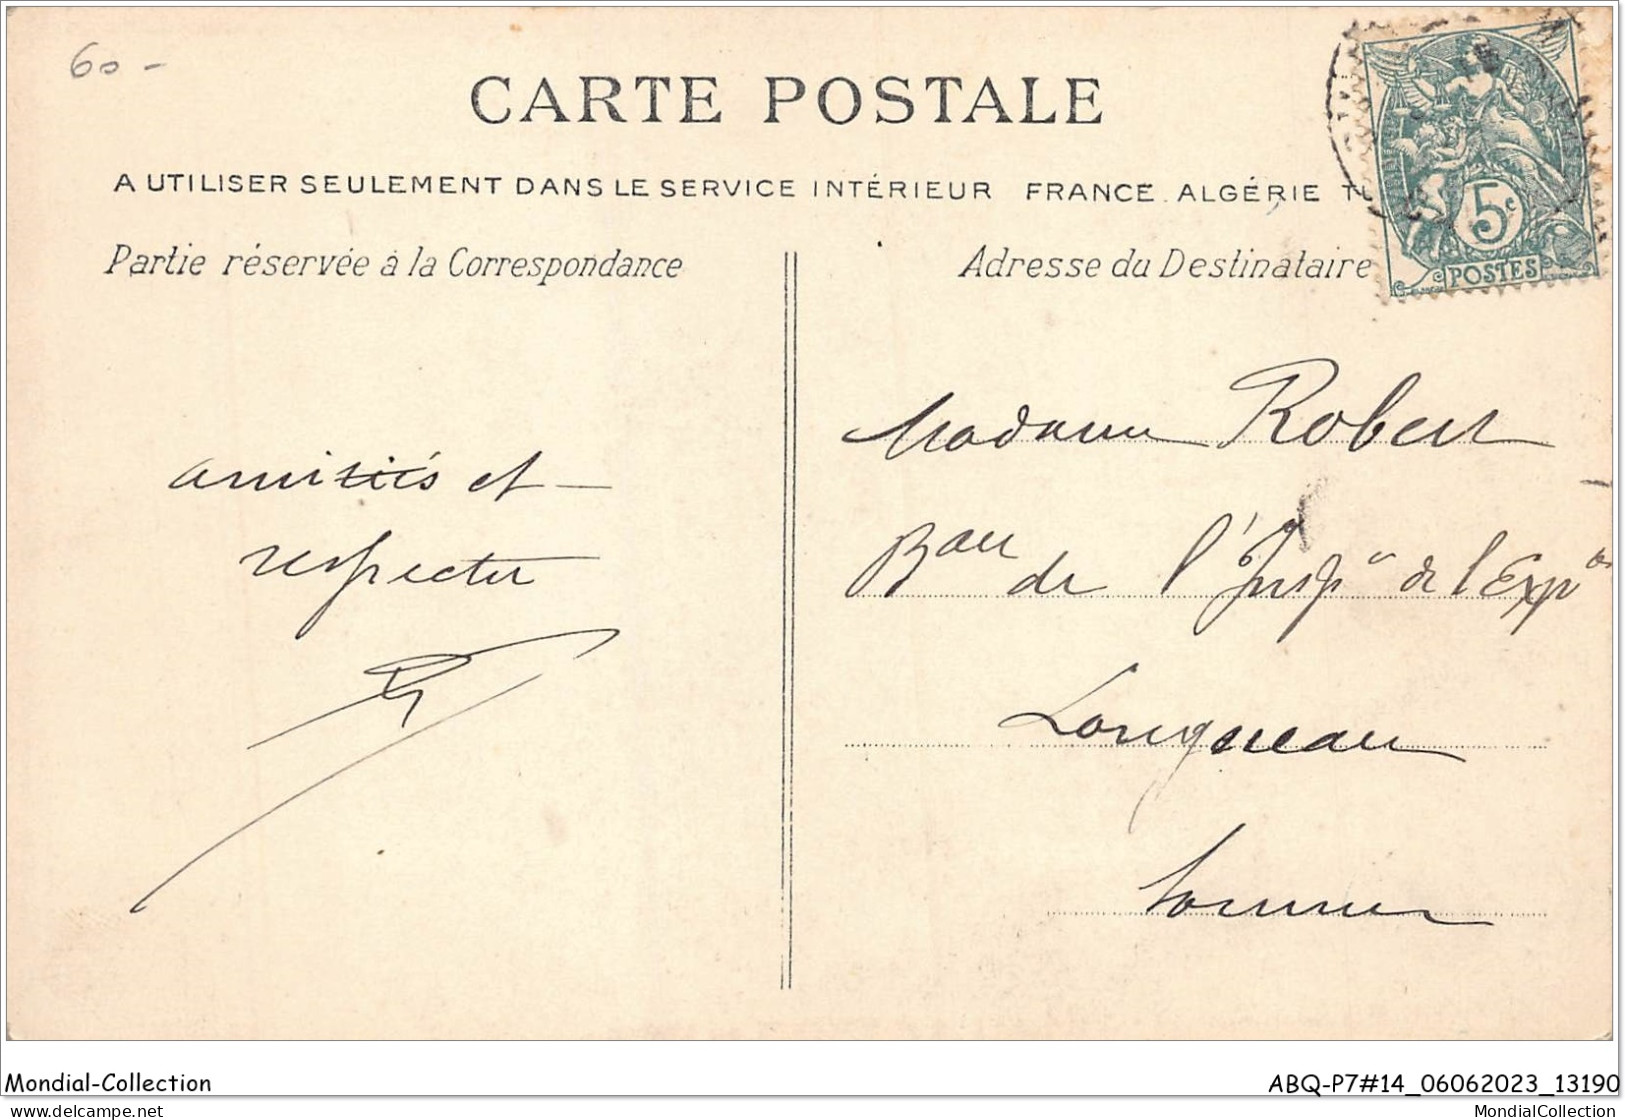 60 -
CARTE POSTALE
A UTILISER SEULEMENT DANS LE SERVICE INTÉRIEUR FRANCE. ALGÉRIE
Partie réservée à la Correspondance
Adresse du Destinataire
5c
POSTES
amitiés et
respectu
Madame Robert
Bau de l'Inspon de l'Expon
Longueau
Somme
Mondial-Collection
ABQ-P7#14_06062023_13190
www.delcampe.net
MondialCollection